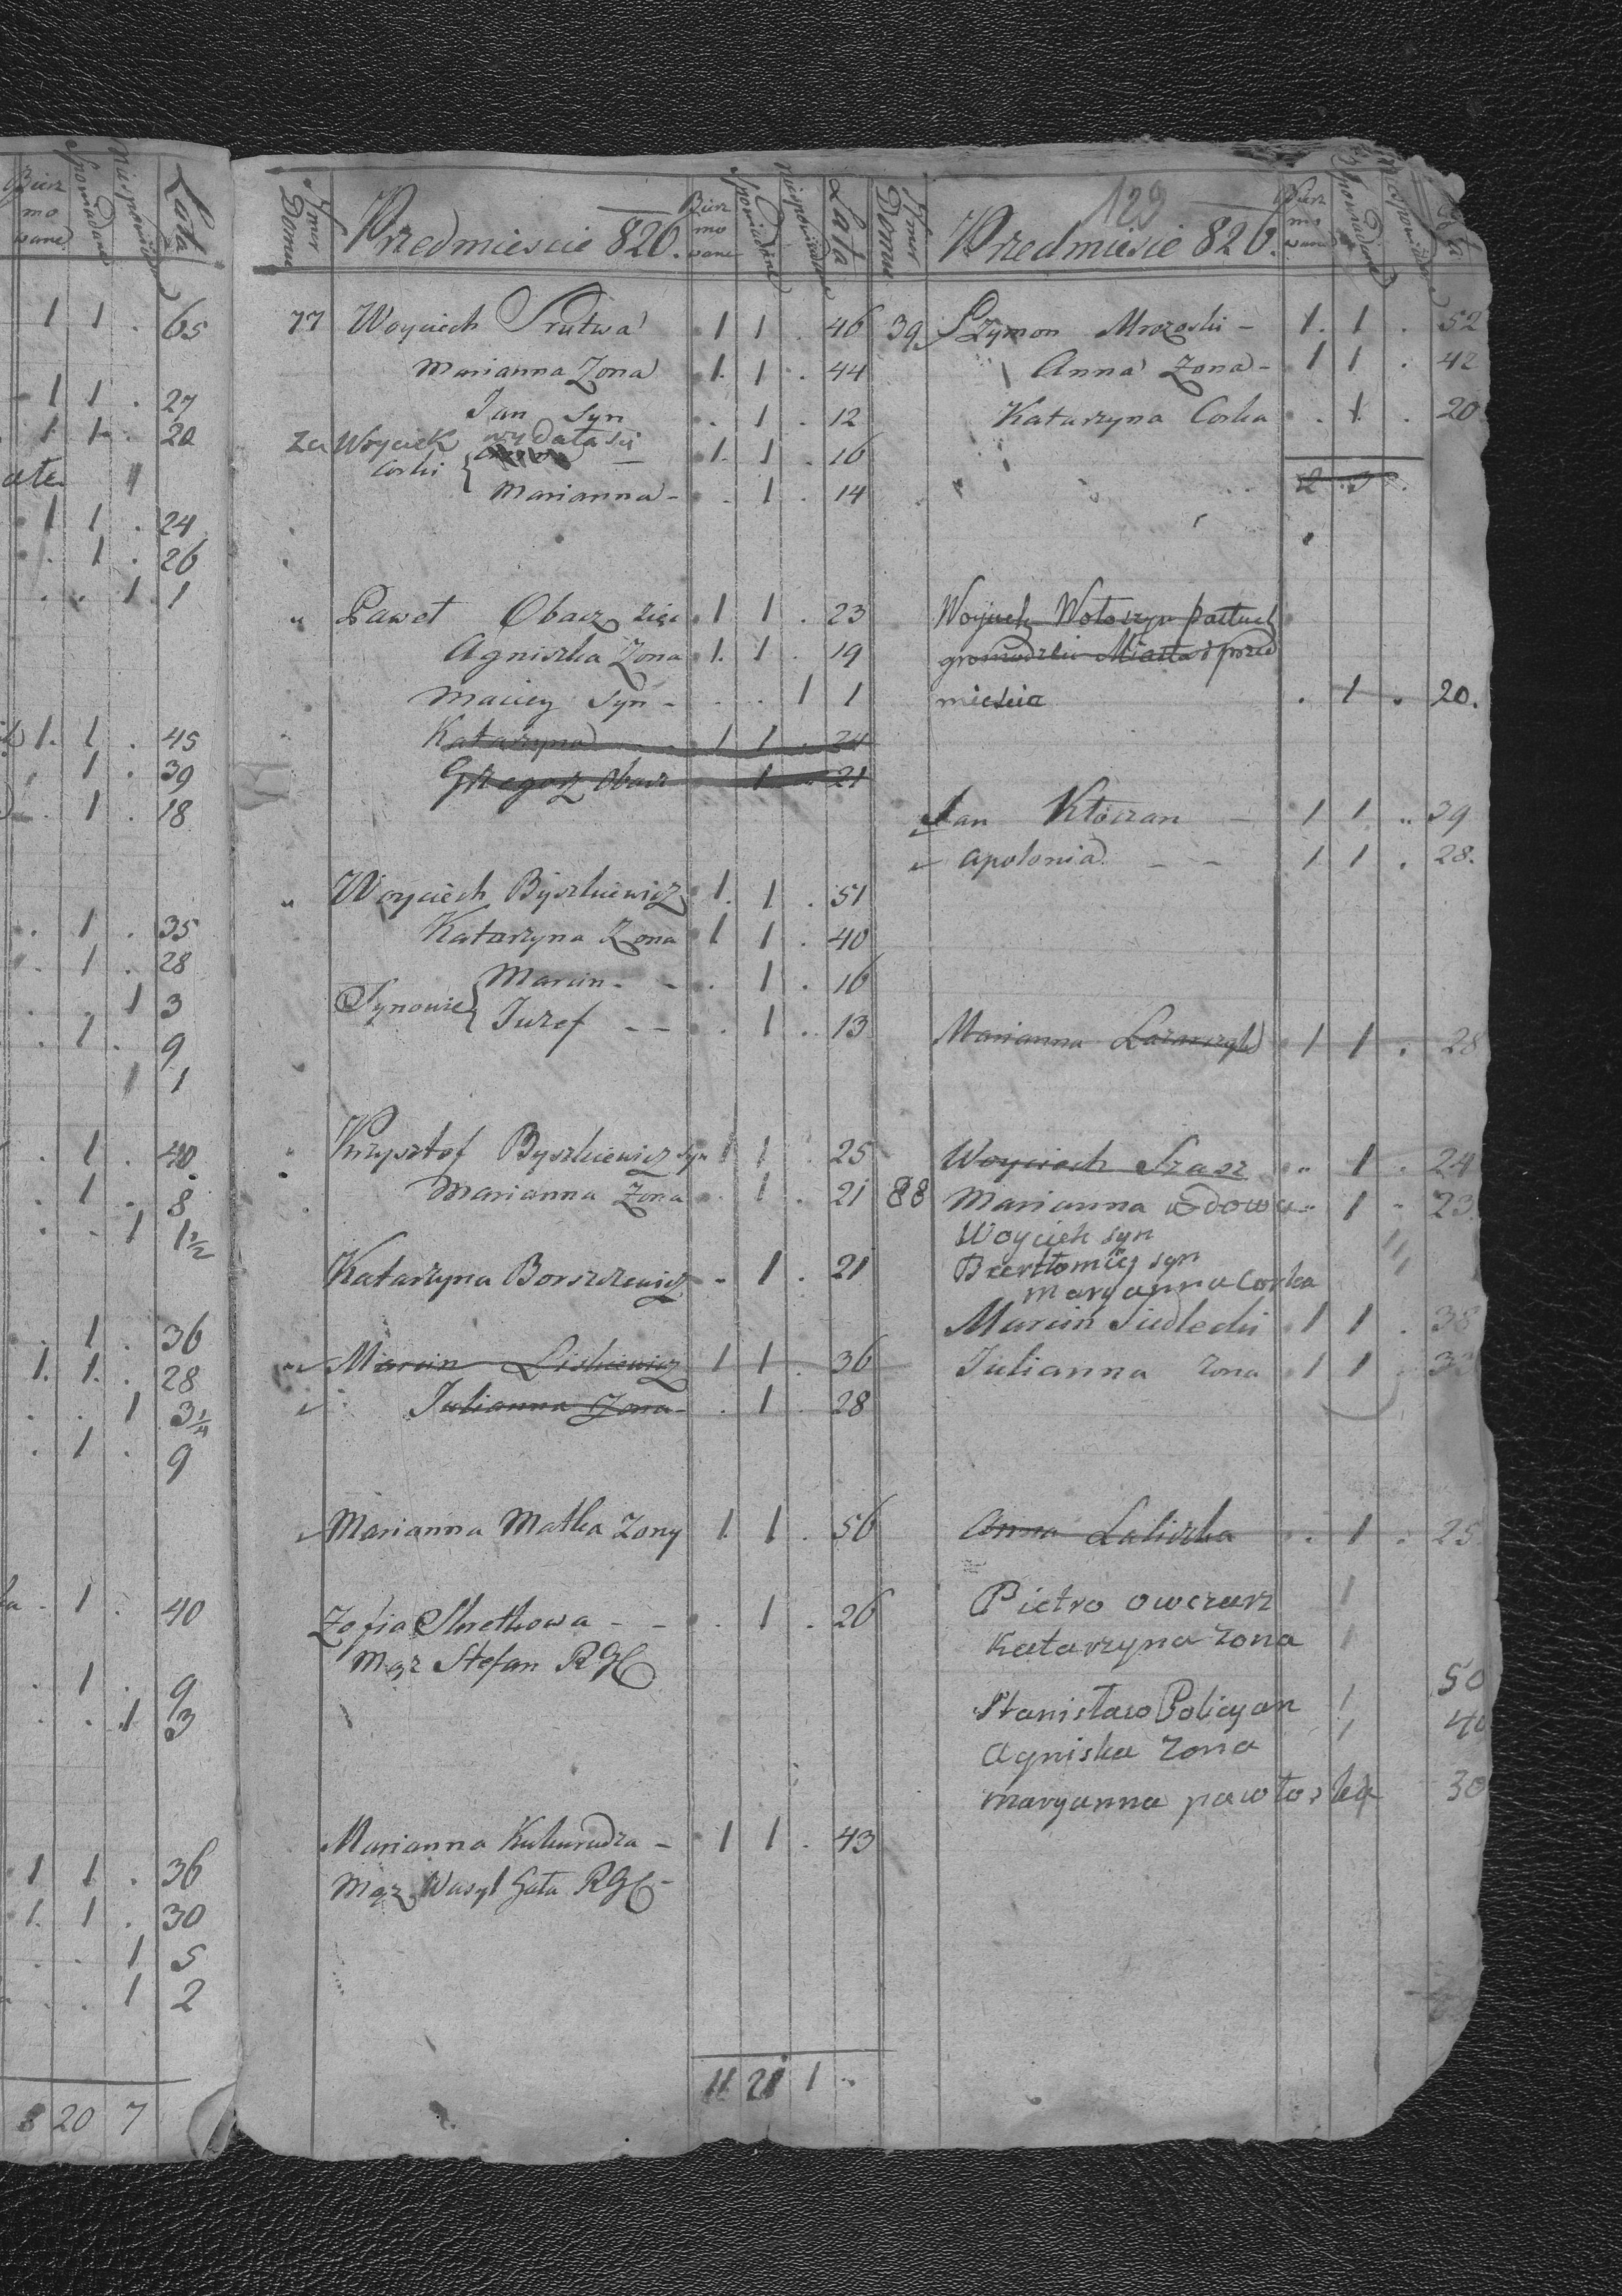 Bierz mo wane Spowiadane Niespowiadane Lata
1 1 . 65
1 1 . 27
1 1 . 20
1
1 1 . 24
. 1 . 26
. . 1 1
1. 1 . 45
1 . 39
1 . 18
. 1 . 35
. 1 . 28
. . 1 3
. 1 . 9
1 1
. 1 . 40
. 1 . 8
. . 1 1½
. 1 . 36
1. 1. . 28
. . 1 3¼
. 1 . 9
1 . 40
. 1 . 9
. . 1 3
1 1 . 36
1. 1 . 30
. . 1 5
. . 1 2
8 20 7
Nmer Domu Przedmiescie 826. Bierz mo wane Spowiadane Niespowiadane Lata
77 Woyciech Prutwa 1 1 . 46
Marianna Zona 1. 1 . 44
Jan Syn . 1 . 12
Za Woyciek wydała sie 1. 1 . 16
Corki { Marianna - . 1 . 14
" Paweł Obacz zięc 1 1 . 23
Agniszka Zona 1. 1 . 19
Maciey Syn - . . 1 1
Katarzyna 1 1 . 24
Grzegorz Obacz 1 . 21
" Woyciech Byszkiewicz 1. 1 . 51
Katarzyna Zona 1 1 . 40
Synowie { Marcin - - . 1 . 16
Juzef - - . 1 . 13
" Krzysztof Byszkiewicz syn 1 1 . 25
Marianna Zona . 1 . 21
Katarzyna Borszczewicz - 1 . 21
Marcin Liskiewicz 1 1 . 36
Julianna Zona - . 1 . 28
Marianna Matka Zony 1 1 . 56
Zofia - - . 1 . 26
Mąz Stefan RGC
Marianna Kukurudza - 1 1 . 43
Mąz Wasyl Gała RGC -
11 21 1
129
Nmer Domu Przedmiescie 826. Bierz mo wane Spowiadane Niespowiadane Lata
39 Szymon Mrozoski - 1. 1 . 52
Anna Zona - 1 1 . 42
Katarzyna Corka . 1 . 20
2 3 .
Woyciech Wołoszyn pastuch
gromadzki Miasta i przed
miescia . 1 . 20.
Jan Kłoczan - 1 1 " 39
Apolonia - - 1 1 . 28.
Marianna Lazarczyk 1 1 . 28
Woyciech Szasz " 1 . 24
88 Marianna wdowa " 1 - 23.
Woyciek syn
Bartłomiej syn
maryanna Corka
Marcin Siedlecki 1 1 . 38
Julianna Zona 1 1
Anna Laliczka . 1 . 25
Pietro owczarz 1
Katarzyna zona 1
50
Stanisław Policyan 1 40
Agniska zona 1
maryanna pawłoska 30